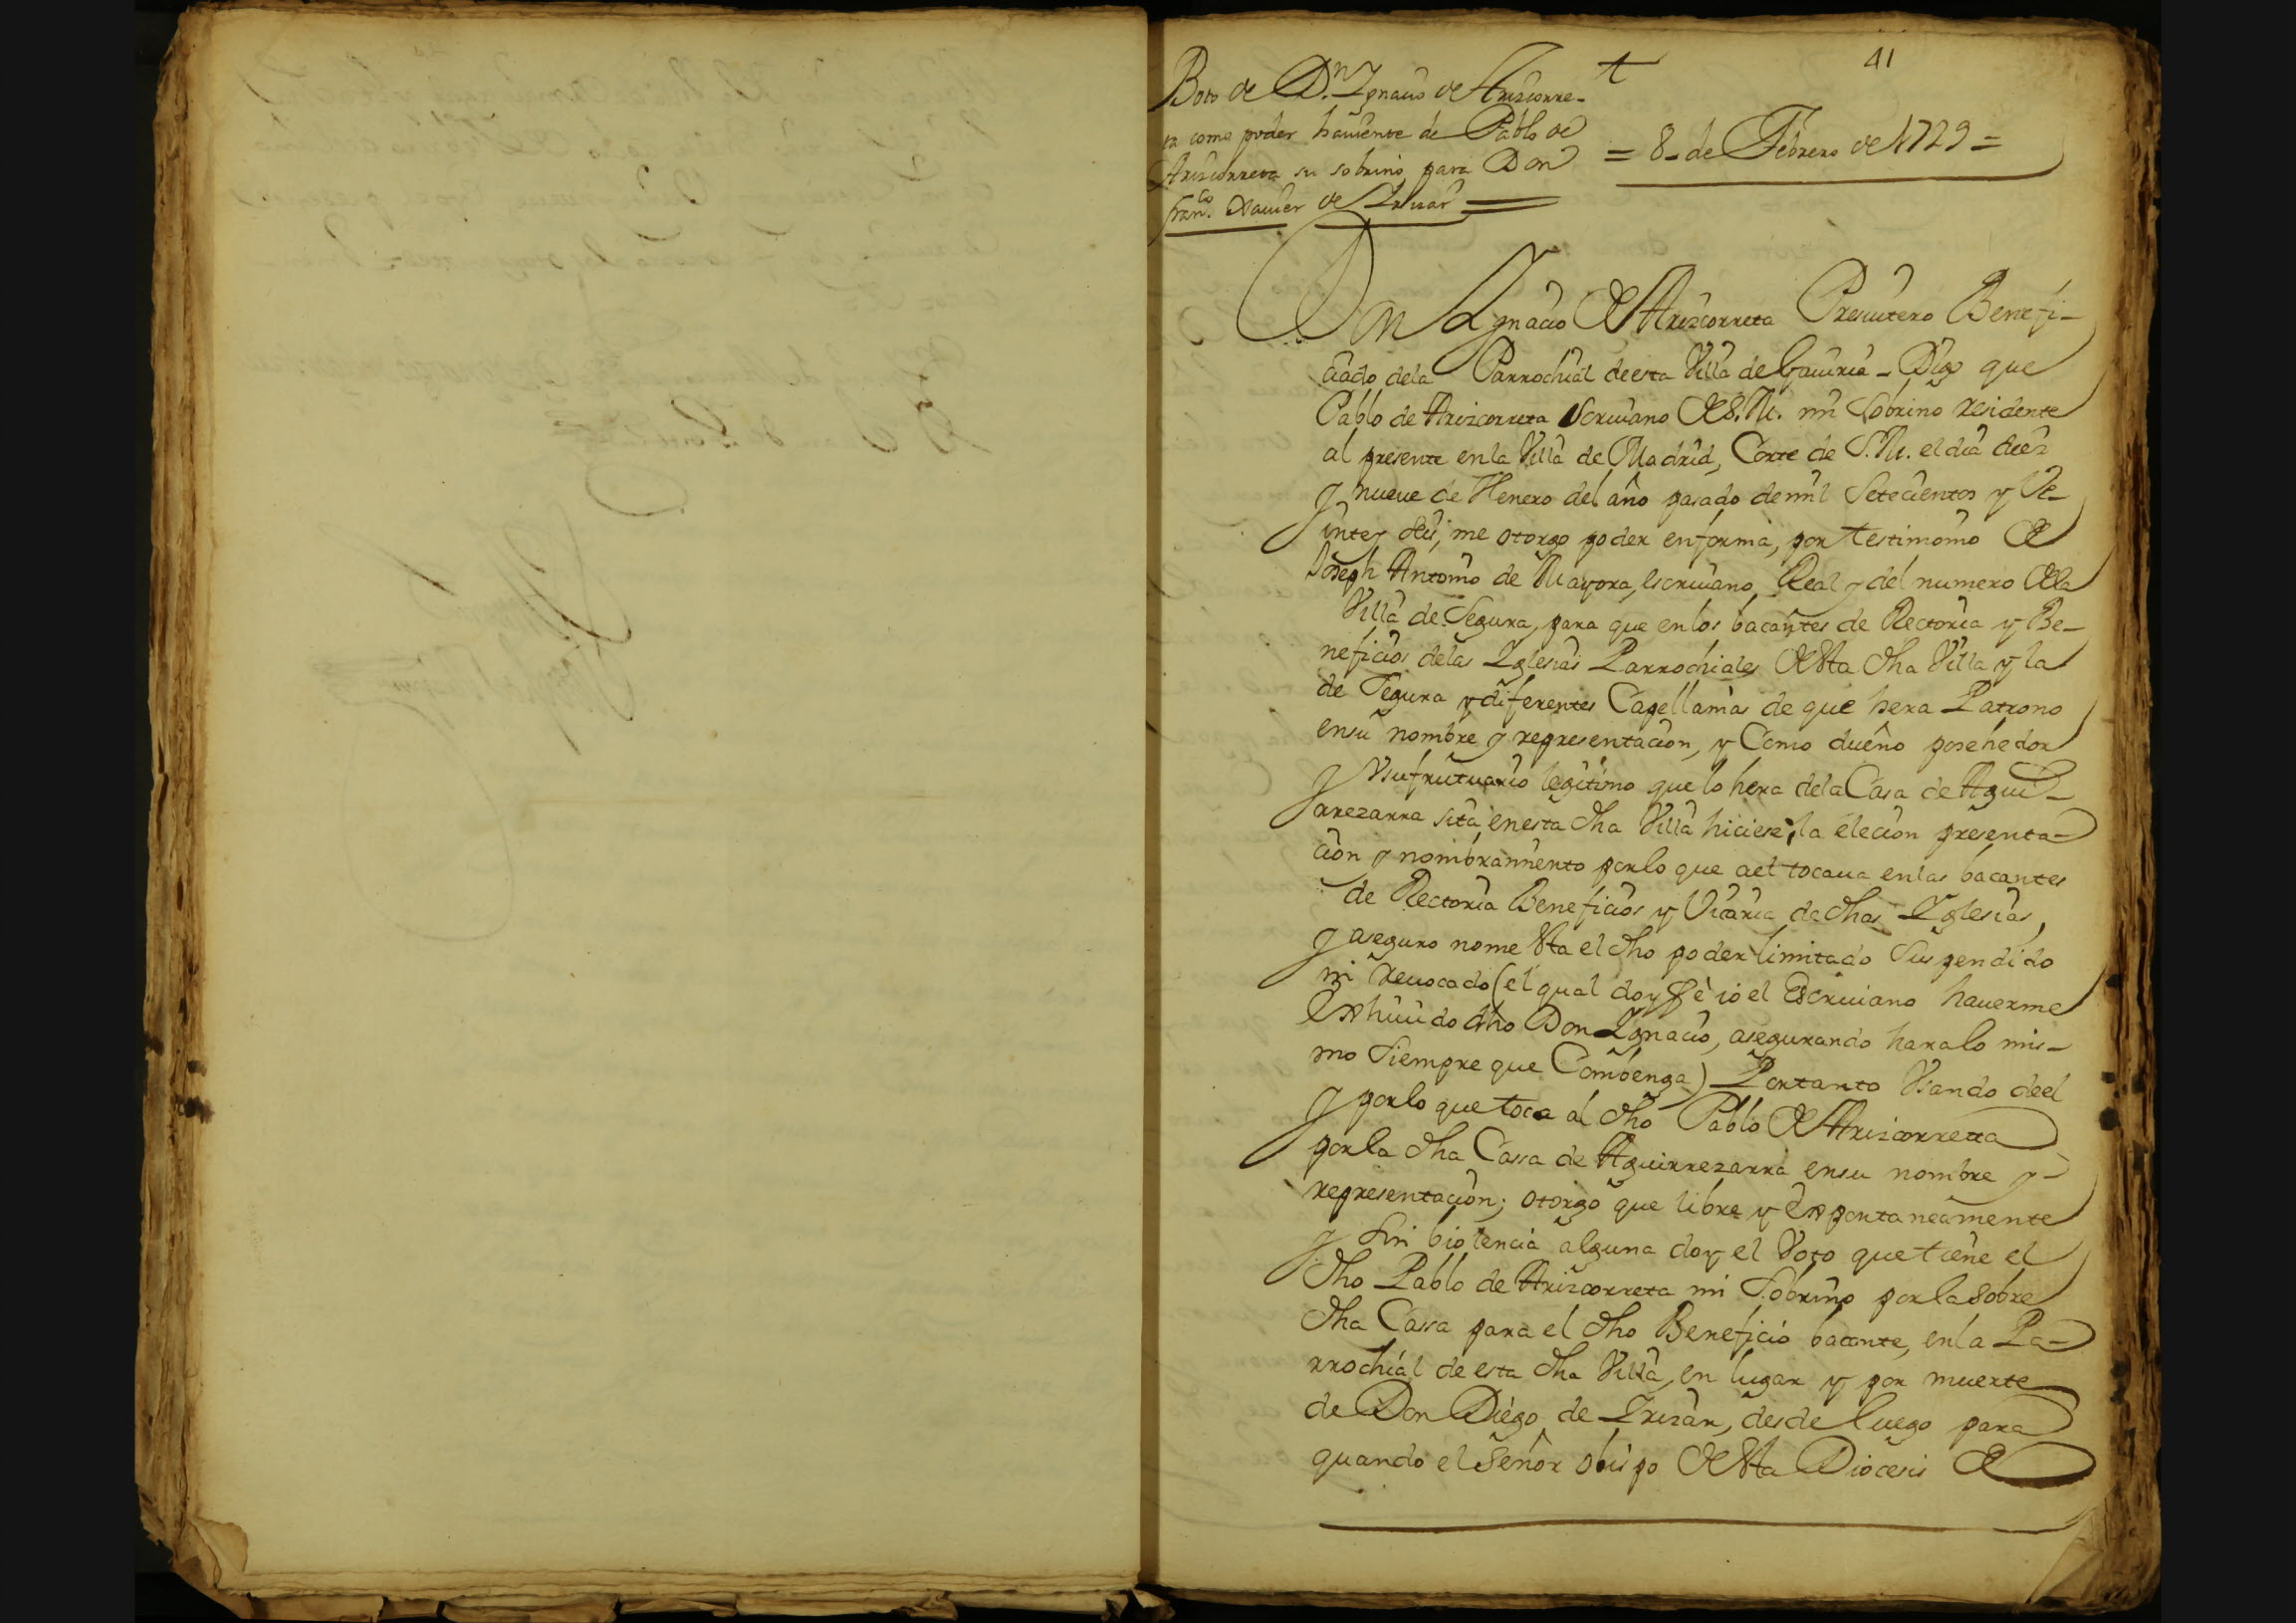 41
Boto de D.n Ygnacio de Arizcorre-
ta como poder haviente de Pablo de
Arizcorreta su sobrino para Don
fran.co Xavier de Irizar
= 8 de Febrero de 1729 =
Don Ygnacio de Arizcorreta Presvitero Benefi-
ciado dela Parrochial de esta Villa de Gaviria - Digo que
Pablo de Arizcorreta Scrivano de S. M. mi Sobrino residente
al presente en la Villa de Madrid, Corte de S. M. el dia diez
y nueve de Henero del año pasado de mil Setecientos y Ve-
inte y seis, me otorgo poder en forma, por testimonio de
Joseph Antonio de Mayora, escrivano Real y del numero de la
Villa de Segura, para que en los bacantes de Rectoria y Be-
neficios delas Yglesias Parrochiales de esta dha Villa y la
de Segura y diferentes Capellanias de que hera Patrono
en su nombre y representacion, y Como dueño posehedor
y Vsufrutuario legitimo que lo hera dela Casa de Agui-
rrezarra sita en esta dha Villa hiciese la elecion presenta-
cion y nombramiento por lo que a el tocava en las bacantes
de Rectoria Beneficios y Vicaria de dhas Yglesias,
y aseguro no me esta el dho poder limitado Suspendido
ni revocado (el qual doy feè io el Escriviano haverme
Exhivido dho Don Ygnacio, asegurando hara lo mis-
mo Siempre que Combenga) Por tanto Vsando de el
y por lo que toca al dho Pablo de Arizcorreta
por la dha Cassa de Aguirrezarra en su nombre y
representacion; otorgo que libre y Expontaneamente
y Sin biolencia alguna doy el Voto que tiene el
dho Pablo de Arizcorreta mi Sobrino por la Sobre
dha Cassa para el dho Beneficio bacante, en la Pa-
rrochial de esta dha Villa, en lugar y por muerte
de Don Diego de Irizar, desde luego para
quando el Señor obispo de esta Diocesis de